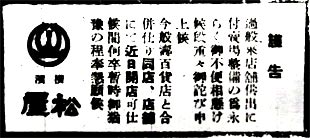 謹告
過般来店舗供出に
付資出整備の為永
らく御不便相懸け
候段重々御詫び申
上候
今般壽百貨店と合
併仕り同店、店舗
にて近日開店可仕
候間何卒暫時御猶
豫の程奉懇願候
横濱
松屋